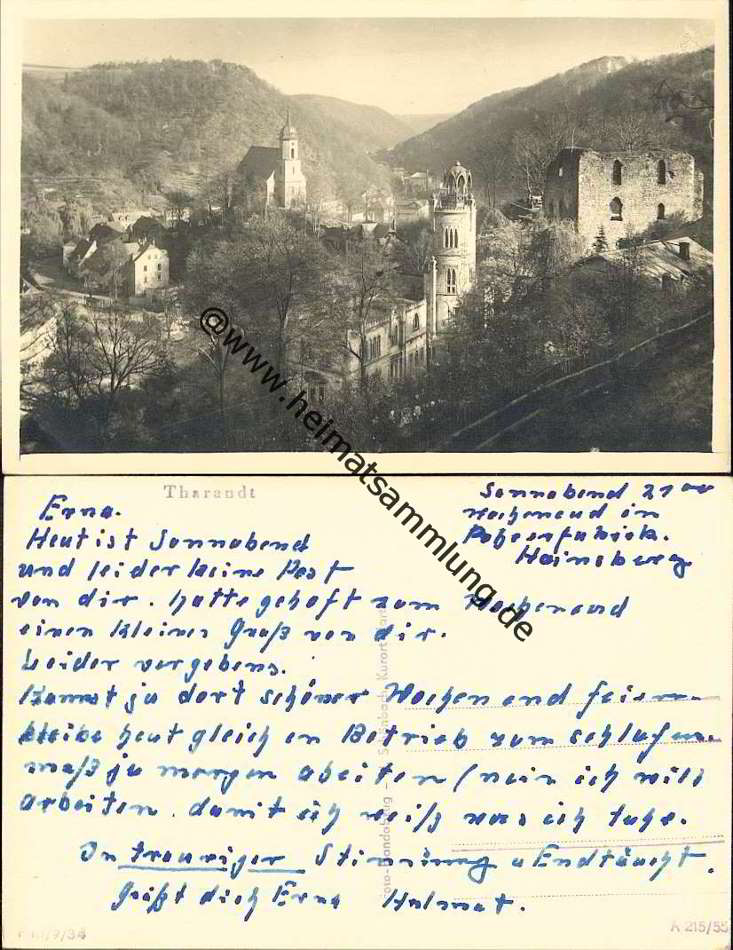 @www.heimatsammlung.de
Tharandt
Sonnabend 21 00
Wochenend in
Papierfabrick.
Hainsberg
Erna.
Heut ist Sonnabend
und leider keine Post
von dir. hatte gehoft zum Wochenend
einen kleinen Gruß von dir.
Leider vergebens.
Kannst ja dort schöner Wochenend feiern
bleibe heut gleich en Betrieb zum schlafen.
muß ja morgen abeiten (nein ich will
arbeiten. damit ich weiß was ich tuhe.
In trauriger Stimmung u Endtäucht.
grüßt dich Erna Helmut.
Kurort
A 215/55
9/34